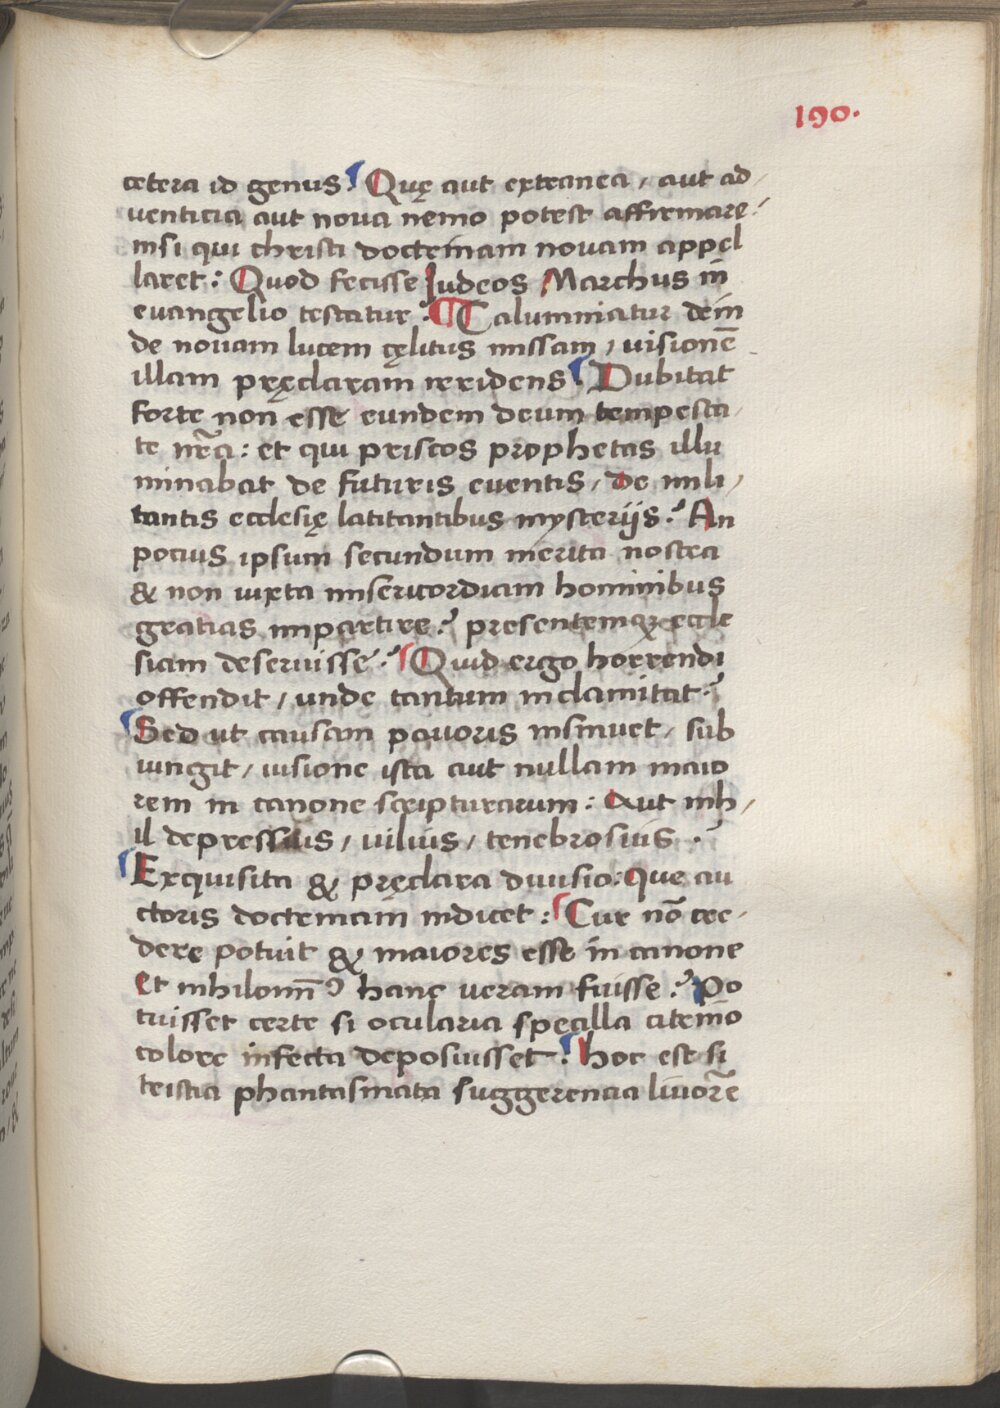 190.
cetera id genus. Quę aut extranea / aut ad /
venticia aut noua nemo potest affirmare /
nisi qui christi doctrinam nouam appel
laret: Quod fecisse Iudeos Marchus in
euangelio testatur. Calumniatur dein
de nouam lucem cęlitus missam / visionē
illam pręclaram irridens. Dubitat
forte non esse eundem deum tempesta /
te nr̄a: et qui priscos prophetas illu
minabat de futuris euentis / de mili /
tantis ecclesię latitantibus mysterijs? An
pocius ipsum secundum merita nostra
& non iuxta misericordiam hominibus
gratias impartire? presentemqꝫ eccle
siam deseruisse? Quid ergo horrendi
offendit / unde tantum inclamitat?
Sed ut causam pauoris insinuet / sub
iungit / uisione ista aut nullam maio
rem in canone scripturarum: Aut nih /
il depressius / uilius / tenebrosius.?
Exquisita & pręclara diuisio: Que au
ctoris doctrinam indicet: Cur nō cre /
dere potuit & maiores esse in canone
Et nihilomīꝰ hanc ueram fuisse? Po
tuisset certe si ocularia specilla citrino
colore infecta deposuisset. hoc est si
tristia phantasmata suggerencia liuorē